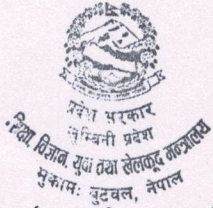 प्रदेश सरकार
लुम्बिनी प्रदेश
शिक्षा विज्ञान, युवा तथा खेलकूद मन्त्रालय
मुकामः बुटवल, नेपाल